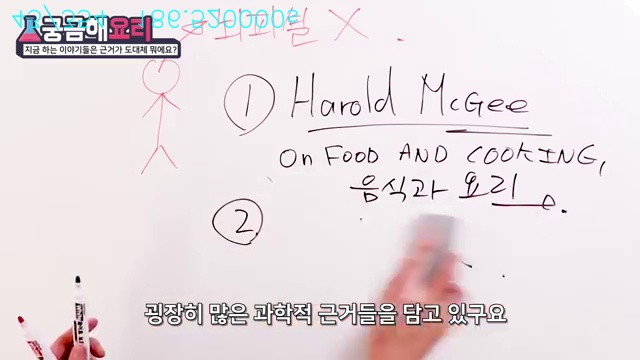 궁금해요리
지금 하는 이야기들은 근거가 도대체 뭐에요?
X.
① Harold McGee
On FOOD AND COOKING,
음식과 요리.
②
굉장히 많은 과학적 근거들을 담고 있구요